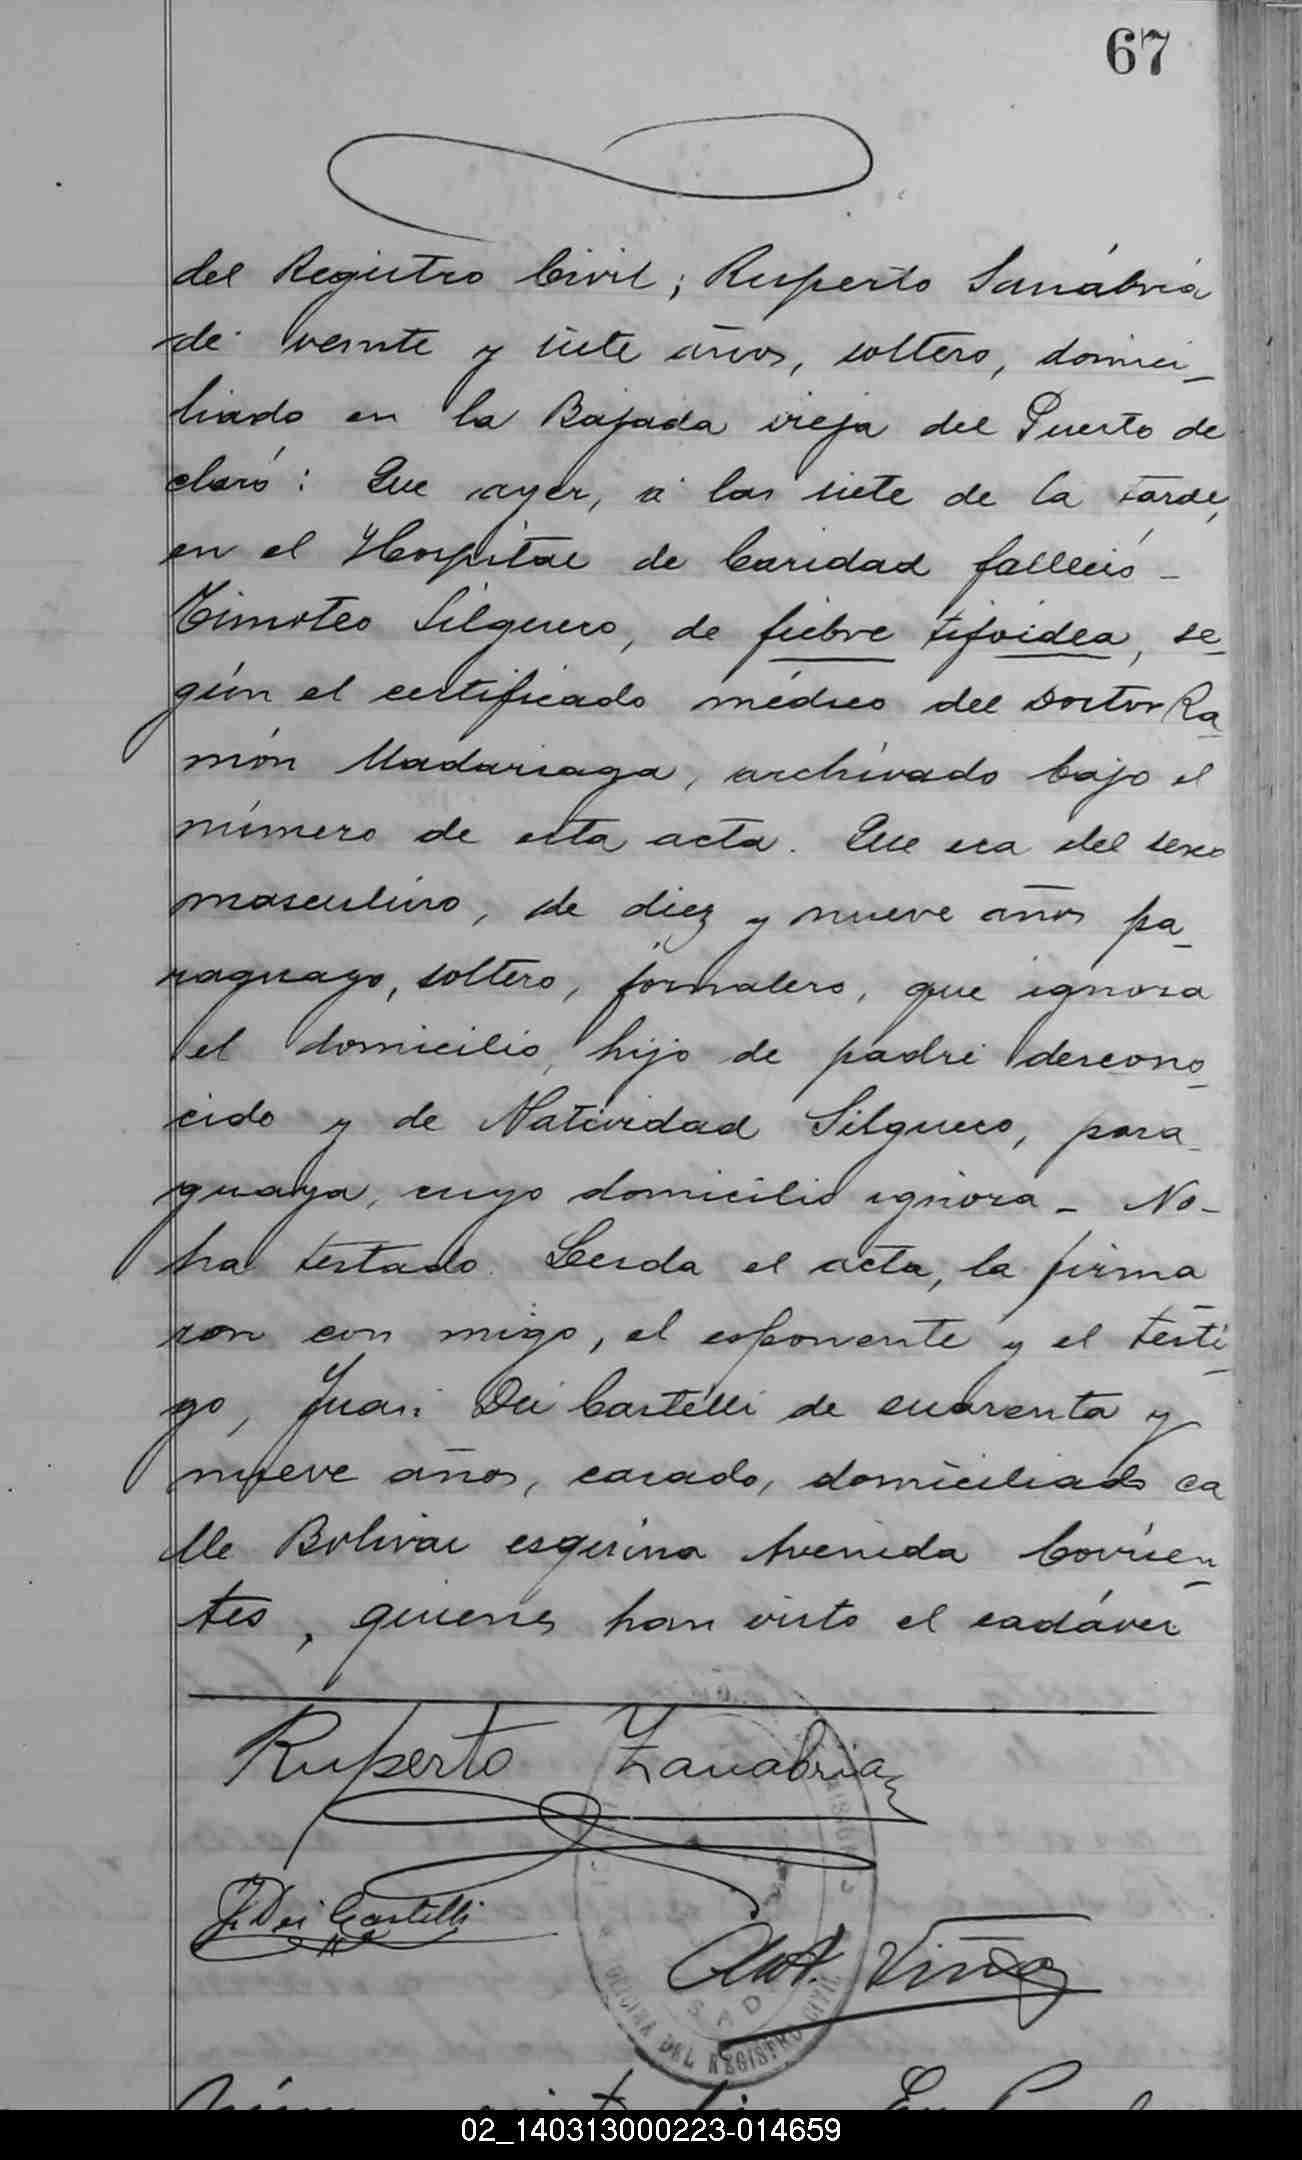 67
del Registro Civil; Ruperto Sanábria
de veinte y siete años, soltero, domici_
liado en la Bajada vieja del Puerto de
claró: Que ayer, á las siete de la tarde,
en el Hospital de Caridad falleció _
Timoteo Silguero, de fiebre tifoidea, se_
gún el certificado médico del Doctor Ra_
món Madariaga, archivado bajo el
número de esta acta. Que era del sexo
masculino, de diez y nueve años pa_
raguayo, soltero, jornalero, que ignora
el domicilio, hijo de padre descono_
cido y de Natividad Silguero, para_
guaya, cuyo domicilio ignora _ No_
ha testado. Leida el acta, la firma
ron con migo, el esponente y el testi_
go, Juan Dei Castelli de cuarenta y
nueve años, casado, domiciliado ca
lle Bolivar esquina Avenida Corrien_
tes, quienes han visto el cadáver
Ruperto Zanabria
J. Dei Castelli
Ant. Viña
OFICINA DEL REGISTRO CIVIL
02_140313000223-014659